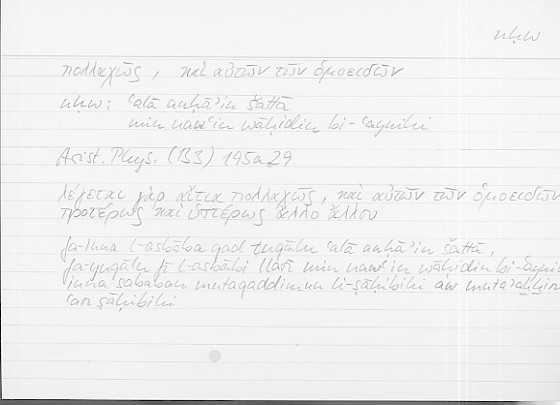 nḥw
πολλαχῶς, καὶ αὐτῶν τῶν ὁμοειδῶν
nḥw: ʿalā anḥāʾin šattā
min nawʿin wāḥidin bi-ʿaynihi
Arist. Phys. (B3) 195a29
λέγεται γὰρ αἴτια πολλαχῶς, καὶ αὐτῶν τῶν ὁμοειδῶν
προτέρως καὶ ὑστέρως ἄλλο ἄλλου
fa-inna l-asbāba qad tuqālu ʿalā anḥāʾin šattā,
fa-yuqālu fī l-asbābi llatī min nawʿin wāḥidin bi-ʿayni
inna sababan mutaqaddimun li-ṣāḥibihi aw mutaʾaḫḫirun
ʿan ṣāḥibihi